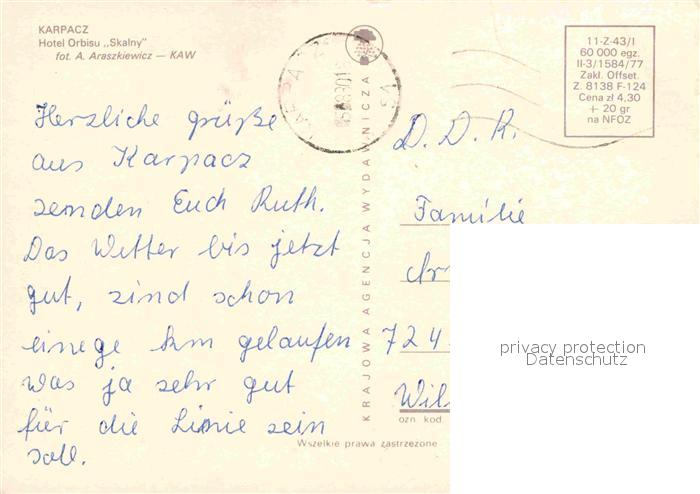 KARPACZ
Hotel Orbisu „Skalny"
fot. A. Araszkiewicz — KAW
11-Z-43/I
60 000 egz.
II-3/1584/77
Zakl. Offset.
Z. 8138 F-124
Cena zł 4,30
+ 20 gr
na NFOZ
Herzliche grüße
aus Karpacz
senden Euch Ruth.
Das Wetter bis jetzt
gut, sind schon
einege km gelaufen
was ja sehr gut
für die Linie sein
soll.
KRAJOWA AGENCJA WYDAWNICZA
D. D. R.
Familie
724
Wil
ozn. kod.
Wszelkie prawa zastrzeżone
privacy protection
Datenschutz